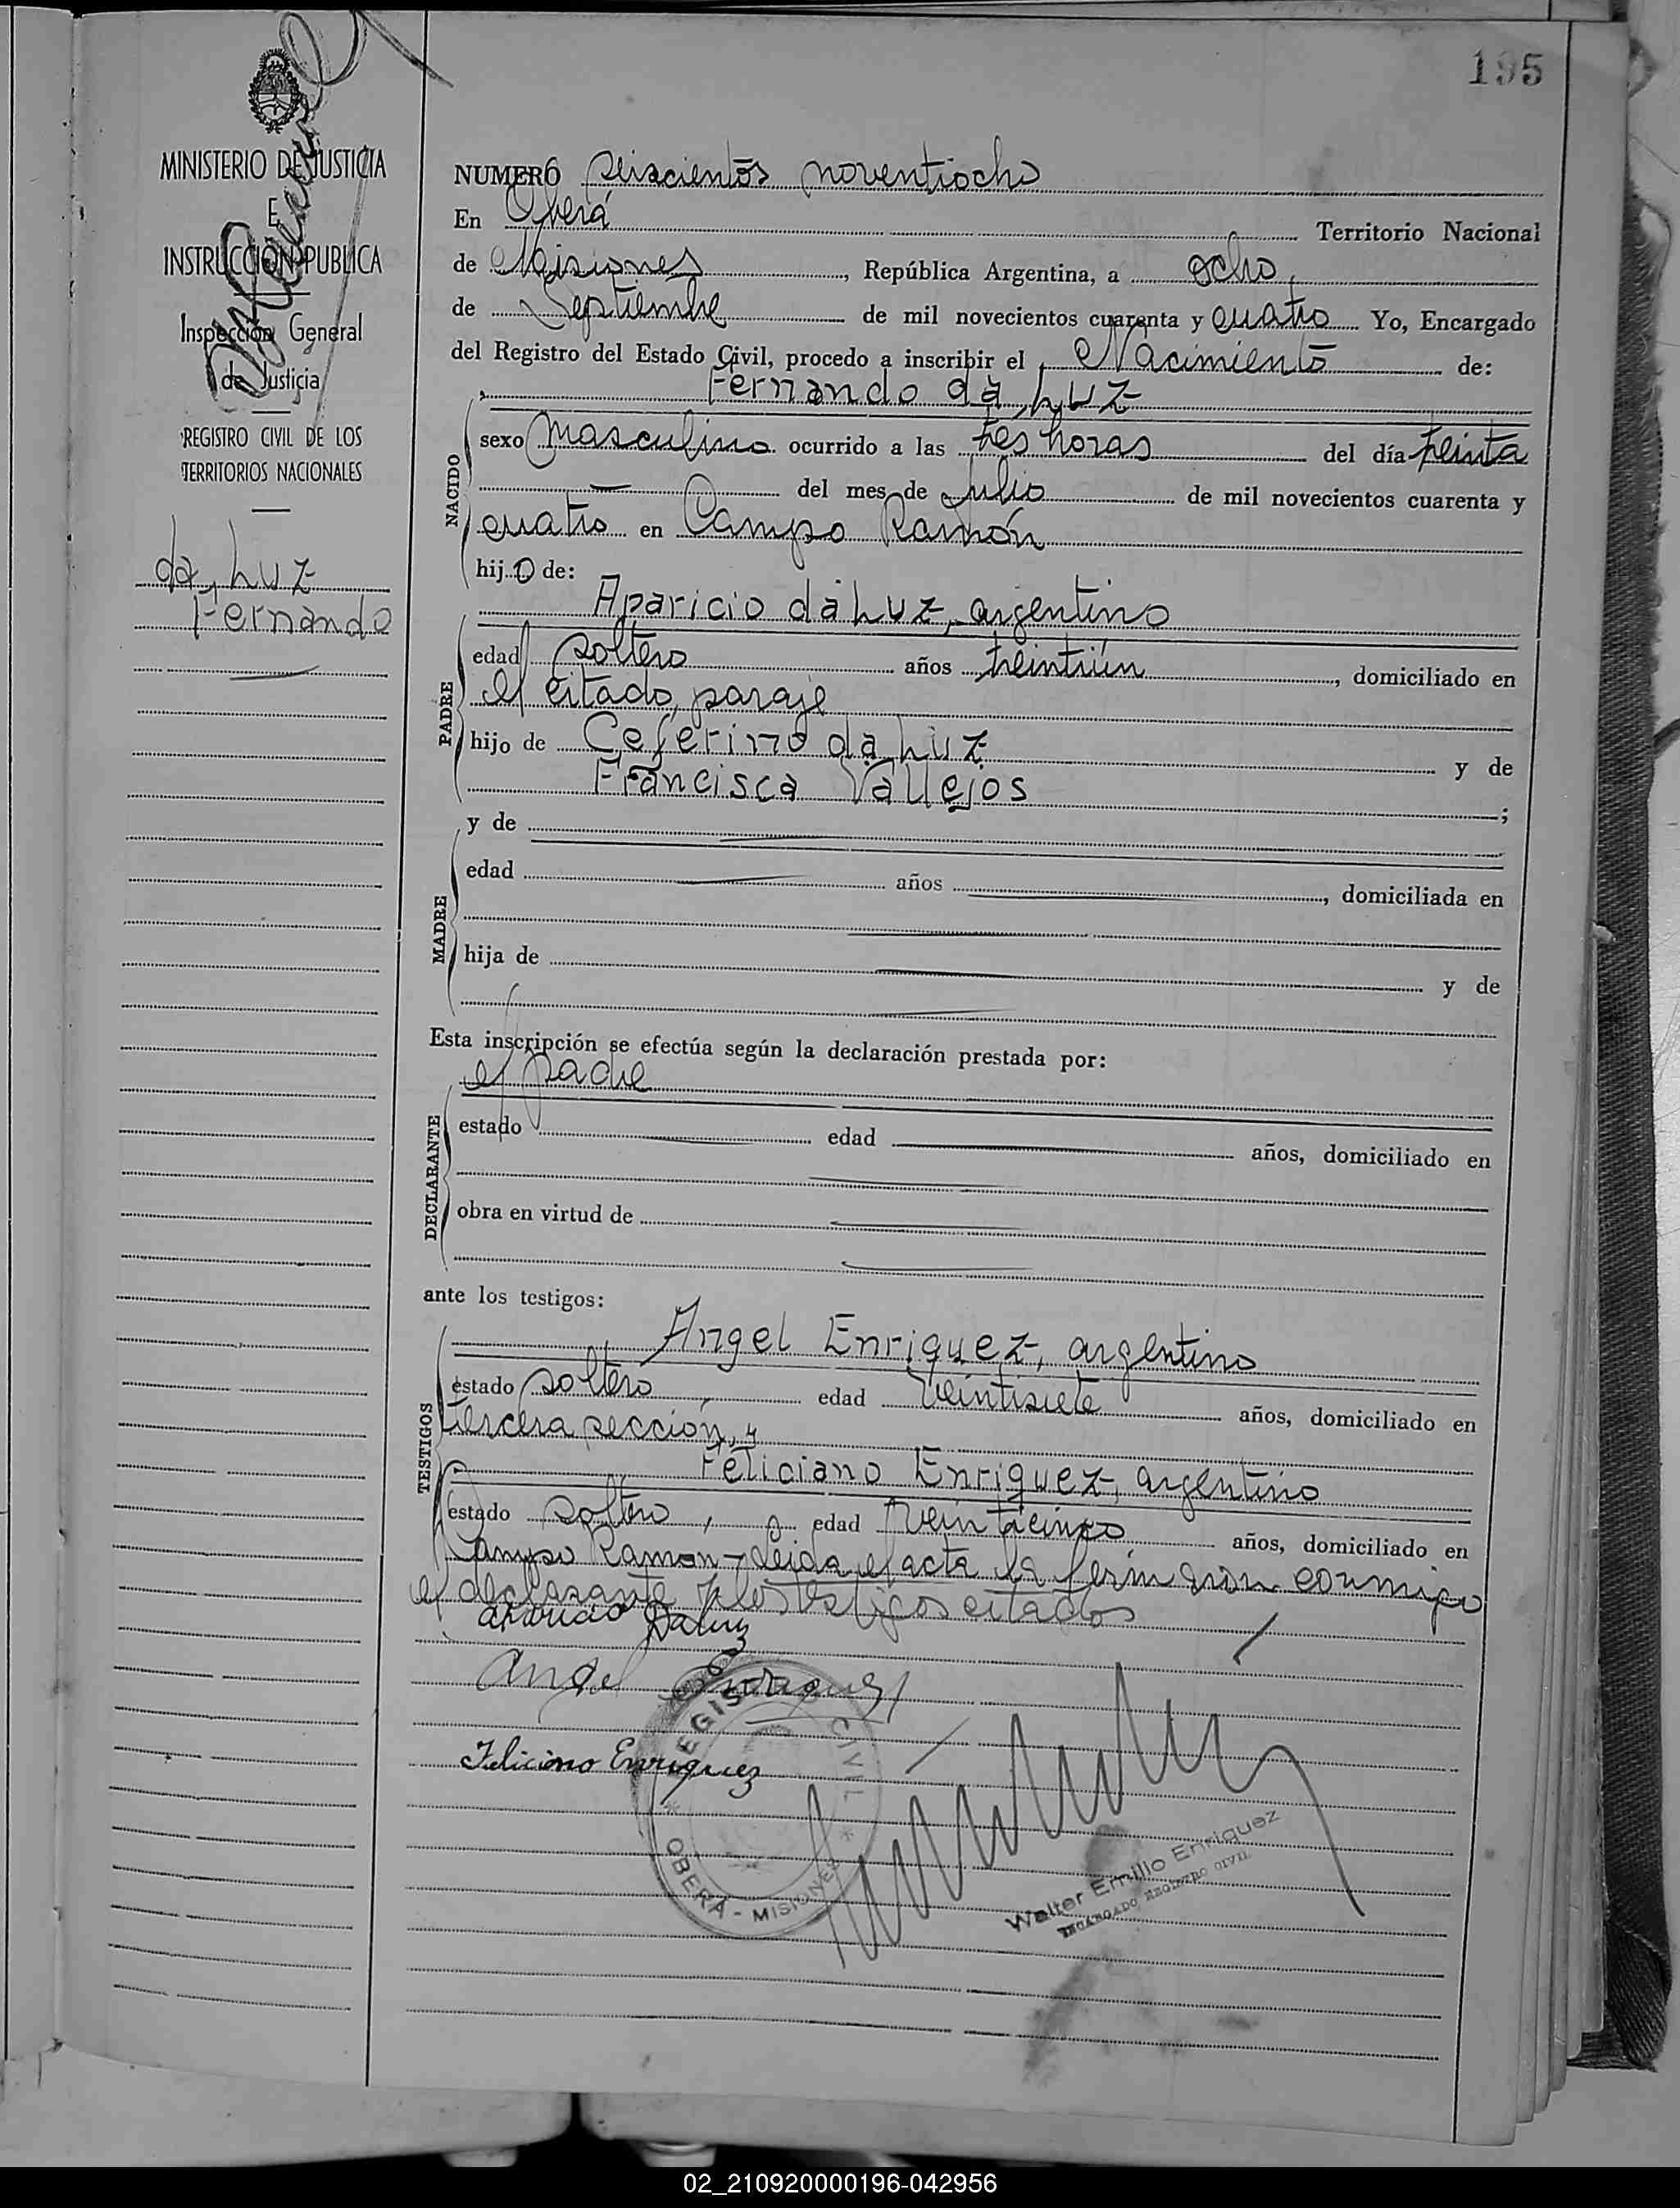 195
MINISTERIO DE JUSTICIA
E
INSTRUCCION PUBLICA
Inspección General
de Justicia
REGISTRO CIVIL DE LOS
TERRITORIOS NACIONALES
da Luz
Fernando
NUMERO seiscientos noventiocho
En Oberá Territorio Nacional
de Misiones, República Argentina, a ocho,
de Septiembre de mil novecientos cuarenta y cuatro Yo, Encargado
del Registro del Estado Civil, procedo a inscribir el Nacimiento de:
Fernando da Luz
NACIDO
sexo masculino ocurrido a las tres horas del día treinta
del mes de Julio de mil novecientos cuarenta y
cuatro en Campo Ramón
hijo de:
PADRE
Aparicio da Luz, argentino
edad soltero años treintiún, domiciliado en
el citado paraje
hijo de Ceferino da Luz y de
Francisca Vallejos;
MADRE
y de
edad años, domiciliada en
hija de y de
Esta inscripción se efectúa según la declaración prestada por:
DECLARANTE
el padre
estado edad años, domiciliado en
obra en virtud de
ante los testigos:
TESTIGOS
Angel Enriquez, argentino
estado soltero, edad veintisiete años, domiciliado en
tercera sección, y
Feliciano Enriquez, argentino
estado soltero, edad veinticinco años, domiciliado en
Campo Ramon - Leida el acta la firmaron conmigo
el declarante y los testigos citados
Aparicio Daluz
Angel Enriquez
Feliciano Enriquez
REGISTRO CIVIL
OBERA - MISIONES
Walter Emilio Enriquez
ENCARGADO REGISTRO CIVIL
02_210920000196-042956